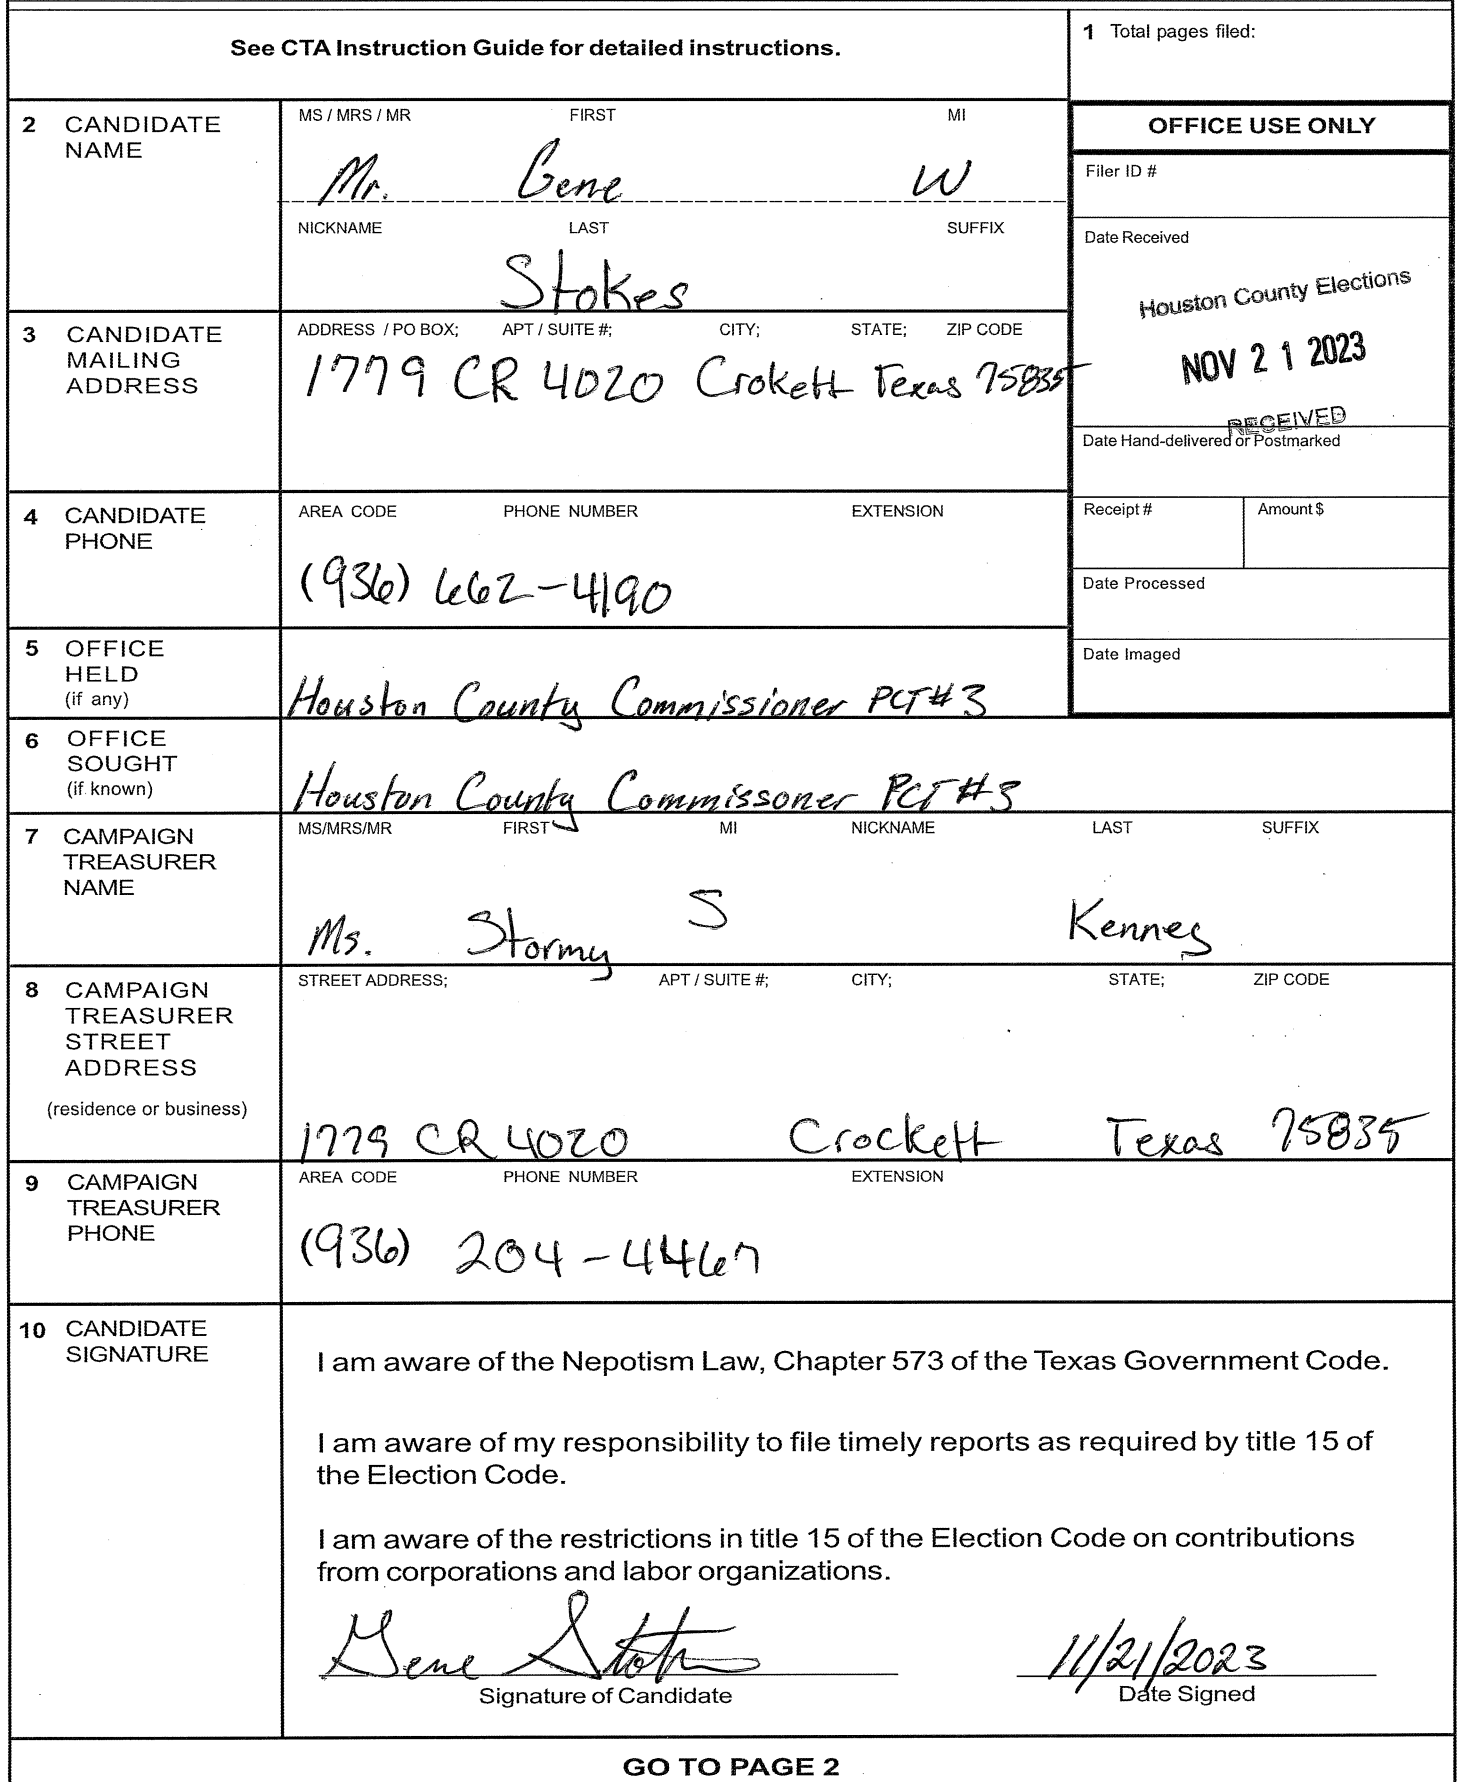 See CTA Instruction Guide for detailed instructions.
1 Total pages filed:
2 CANDIDATE NAME
MS / MRS / MR FIRST MI
Mr. Gene W
NICKNAME LAST SUFFIX
Stokes
OFFICE USE ONLY
Filer ID #
Date Received
Houston County Elections
NOV 21 2023
RECEIVED
Date Hand-delivered or Postmarked
Receipt # Amount $
Date Processed
Date Imaged
3 CANDIDATE MAILING ADDRESS
ADDRESS / PO BOX; APT / SUITE #; CITY; STATE; ZIP CODE
1779 CR 4020 Crokett Texas 75835
4 CANDIDATE PHONE
AREA CODE PHONE NUMBER EXTENSION
(936) 662-4190
5 OFFICE HELD (if any)
Houston County Commissioner PCT#3
6 OFFICE SOUGHT (if known)
Houston County Commissoner PCT#3
7 CAMPAIGN TREASURER NAME
MS/MRS/MR FIRST MI NICKNAME LAST SUFFIX
Ms. Stormy S Kenney
8 CAMPAIGN TREASURER STREET ADDRESS
(residence or business)
STREET ADDRESS; APT / SUITE #; CITY; STATE; ZIP CODE
1779 CR 4020 Crockett Texas 75835
9 CAMPAIGN TREASURER PHONE
AREA CODE PHONE NUMBER EXTENSION
(936) 204-4467
10 CANDIDATE SIGNATURE
I am aware of the Nepotism Law, Chapter 573 of the Texas Government Code.
I am aware of my responsibility to file timely reports as required by title 15 of
the Election Code.
I am aware of the restrictions in title 15 of the Election Code on contributions
from corporations and labor organizations.
Gene Stokes 11/21/2023
Signature of Candidate Date Signed
GO TO PAGE 2